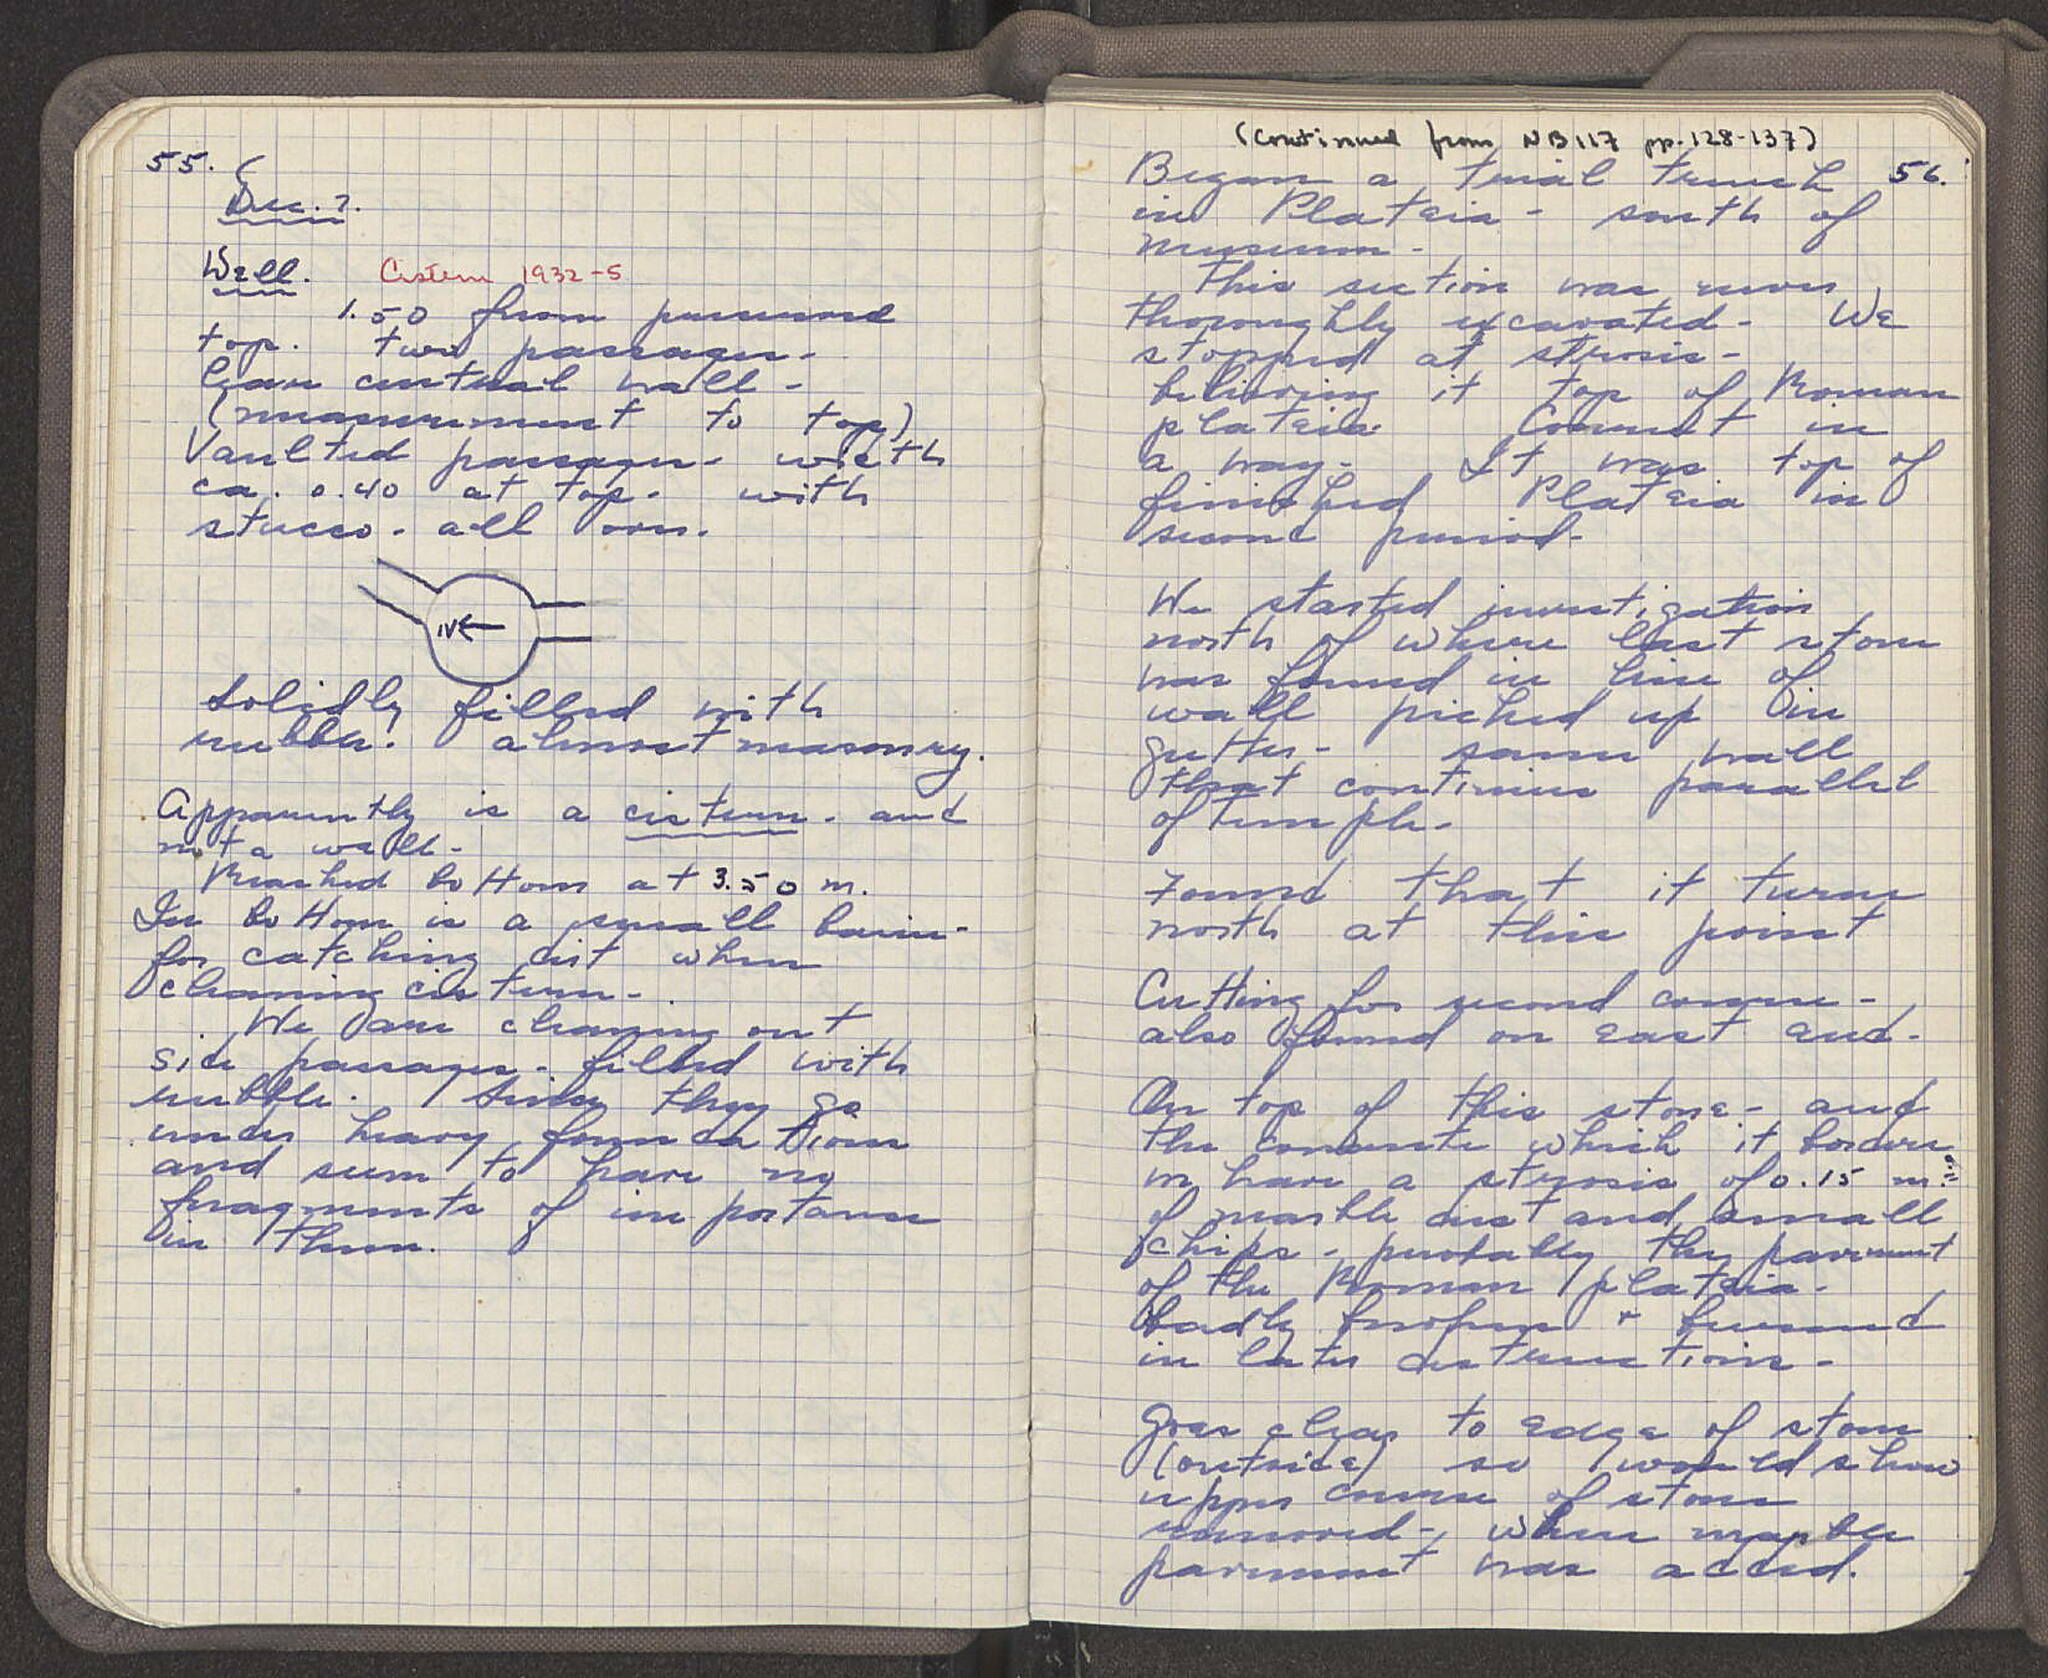 55.
Dec. 7.
Well. Cistern 1932-5
1.50 from preserved
top. two passages.
leave central well -
(measurement to top)
Vaulted passages. width
ca. 0.40 at top. with
stucco. all over.
N
Solidly filled with
rubble. almost masonry.
Apparently is a cistern. and
not a well.
Reached bottom at 3.50 m.
In bottom is a small basin -
for catching dirt when
cleaning cistern.
We are cleaning out
side passages - filled with
rubble. Since they go
under heavy foundations
and seem to have no
fragments of importance
in them.
(Continued from NB 117 pp. 128-137)
Began a trial trench 56.
in Plateia - south of
museum -
This section was never
thoroughly excavated - We
stopped at strosis -
believing it top of Roman
plateia. Correct in
a way - It was top of
finished Plateia in
second period -
We started investigation
north of where last stone
was found in line of
wall picked up in
gutter - same wall
that continues parallel
of temple -
Found that it turns
north at this point
Cutting for second course -
also found on east end -
On top of this stone - and
the concrete which it borders
we have a strosis of 0.15 m.
of marble dust and small
chips - probably the pavement
of the Roman plateia -
badly broken + burned
in later destructions -
Goes clear to edge of stone
(outside) so would show
upper course of stone
removed - when marble
pavement was added.